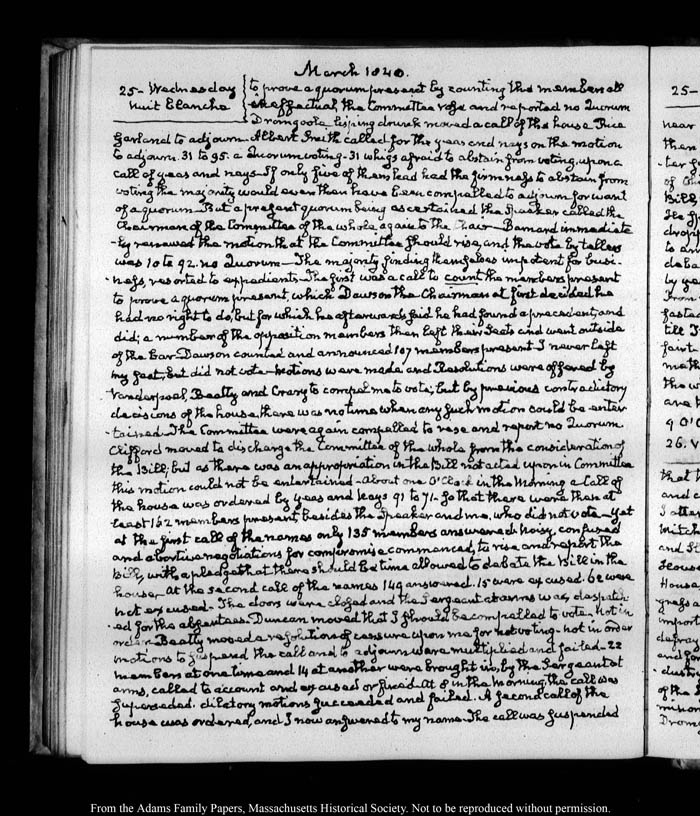 March 1840.
25. Wednesday
Nuit Blanche
to prove a quorum present by counting the members all
ineffectual, the Committee rose and reported no Quorum
Dromgoole lisping drunk moved a call of the house Rice
Garland to adjourn. Albert Smith called for the yeas and nays on the motion
to adjourn. 31 to 95. a Quorum voting. 31 whigs afraid to abstain from voting, upon a
call of yeas and nays. If only five of them had had the firmness to abstain from
voting the majority would even then have been compelled to adjourn for want
of a quorum. But a present quorum being ascertained the Speaker called the
Chairman of the Committee of the whole again to the Chair. Barnard immediate
-ly renewed the motion that the Committee should rise, and the vote by tellers
was 10 to 92. no Quorum. The majority finding themselves impotent for busi-
ness, resorted to expedients. The first was a call to count the members present
to prove a quorum present, which Dawson the Chairman at first decided he
had no right to do, but for which he afterwards said he had found a precedent, and
did; a number of the opposition members then left their seats and went outside
of the bar. Dawson counted and announced 107 members present. I never left
my seat, but did not vote. Motions were made and Resolutions were offered by
Vanderpoel, Beatty and Crary to compel me to vote; but by previous contradictory
decisions of the house, there was no time when any such motion could be enter
-tained. The Committee were again compelled to rise and report no Quorum
Clifford moved to discharge the Committee of the whole from the consideration of
the Bill; but as there was an appropriation in the Bill not acted upon in Committee
this motion could not be entertained. About one O'Clock in the Morning a Call of
the house was ordered by yeas and Nays 91 to 71. So that there were then at
least 162 members present besides the Speaker and me, who did not vote. Yet
at the first call of the names only 135 members answered. Noisy, confused
and abortive negotiations for compromise commenced, to rise and report the
Bill, with a pledge that there should be time allowed to debate the Bill in the
house. At the second call of the names 149 answered. 15 were excused. 62 were
not excused. The doors were closed and the Sergeant at arms was despatch-
-ed for the absentees. Duncan moved that I should be compelled to vote. Not in
order. Beatty moved a resolution of censure upon me for not voting. not in order
motions to suspend the call and to adjourn were multiplied and failed. 22
members at one time and 14 at another were brought in, by the Sergeant at
arms, called to account and excused or fined. At 8 in the morning, the call was
superseded. dilatory motions succeeded and failed. A second call of the
house was ordered, and I now answered to my name. The call was suspended
25-
near
then
of
Bill
drop
to an
deba
by ye
from
faste
till
faint
moth
the w
are
9 O'C
26. V
that
and
I atten
mitch
and St
House
House
gress a
import
defray
and for
of the
Drom
From the Adams Family Papers, Massachusetts Historical Society. Not to be reproduced without permission.